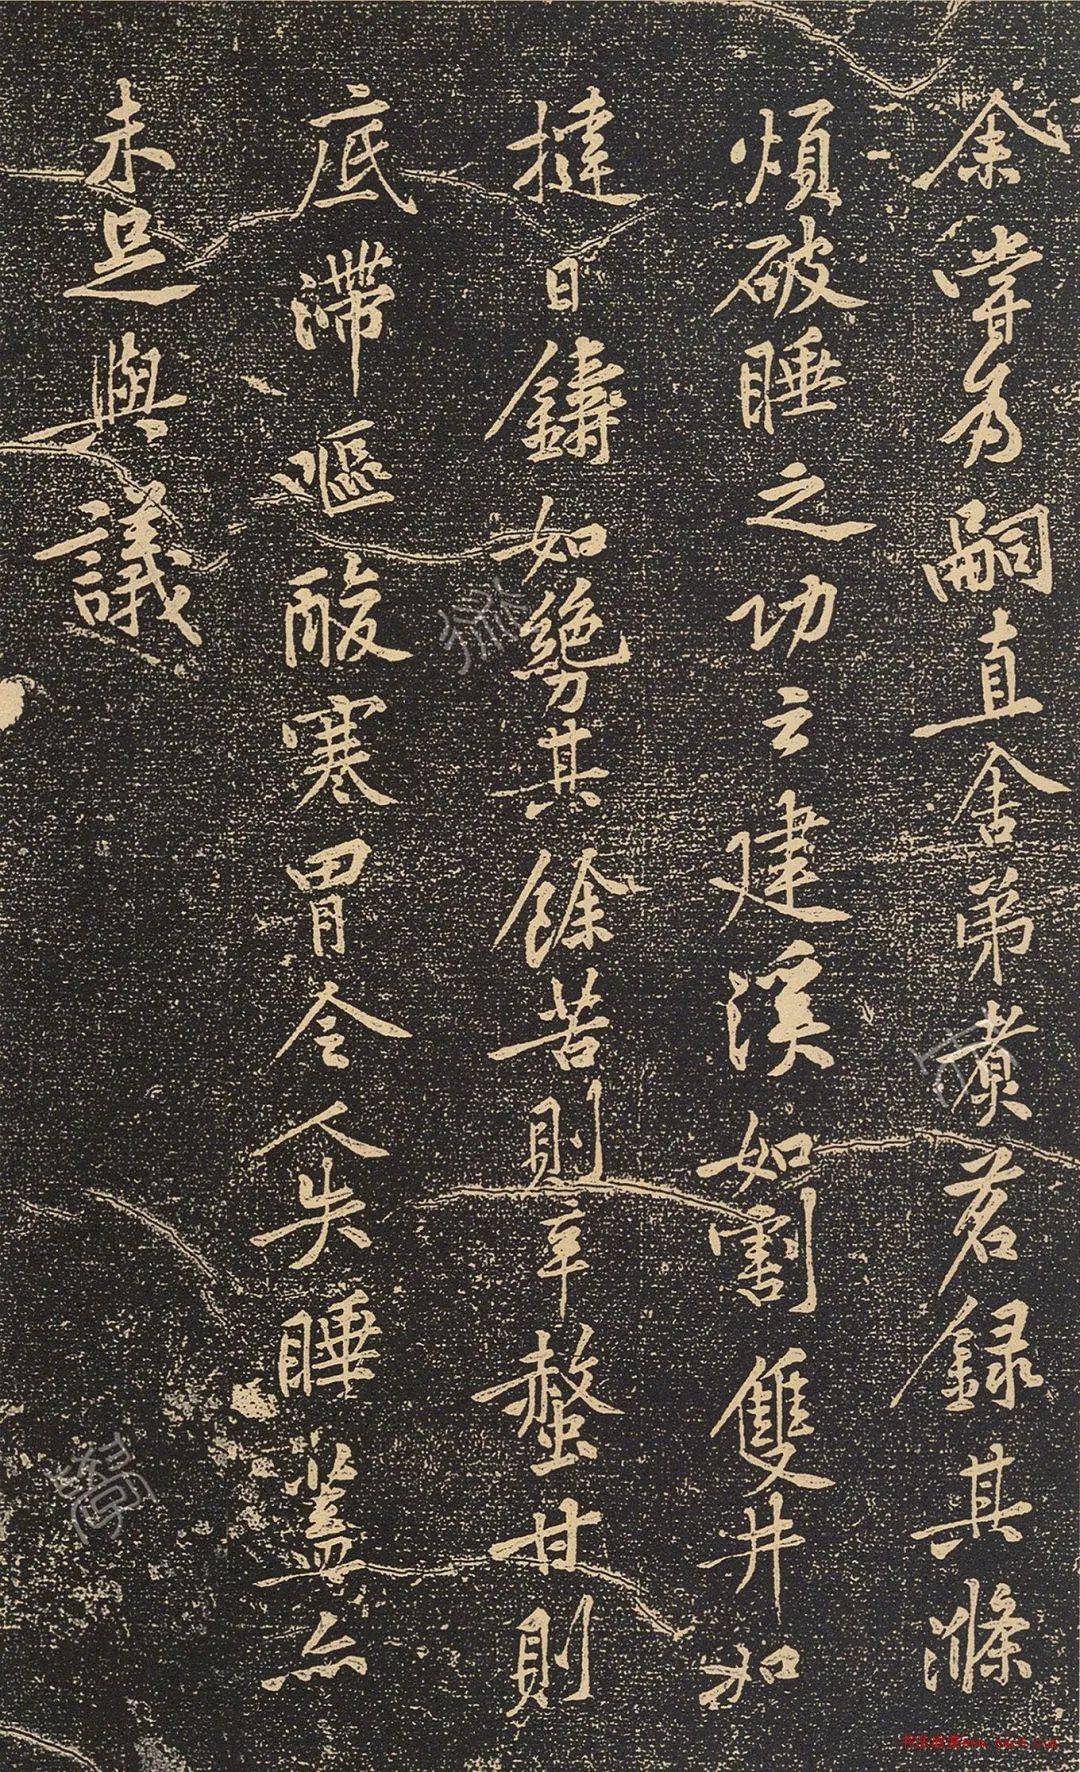 余嘗為嗣直舍弟煮茗錄其滌
煩破睡之功云建溪如割雙井如
撻日鑄如絕勞其餘苦則辛螫甘則
底滯嘔酸寒胃令人失睡蓋亦
未足與議